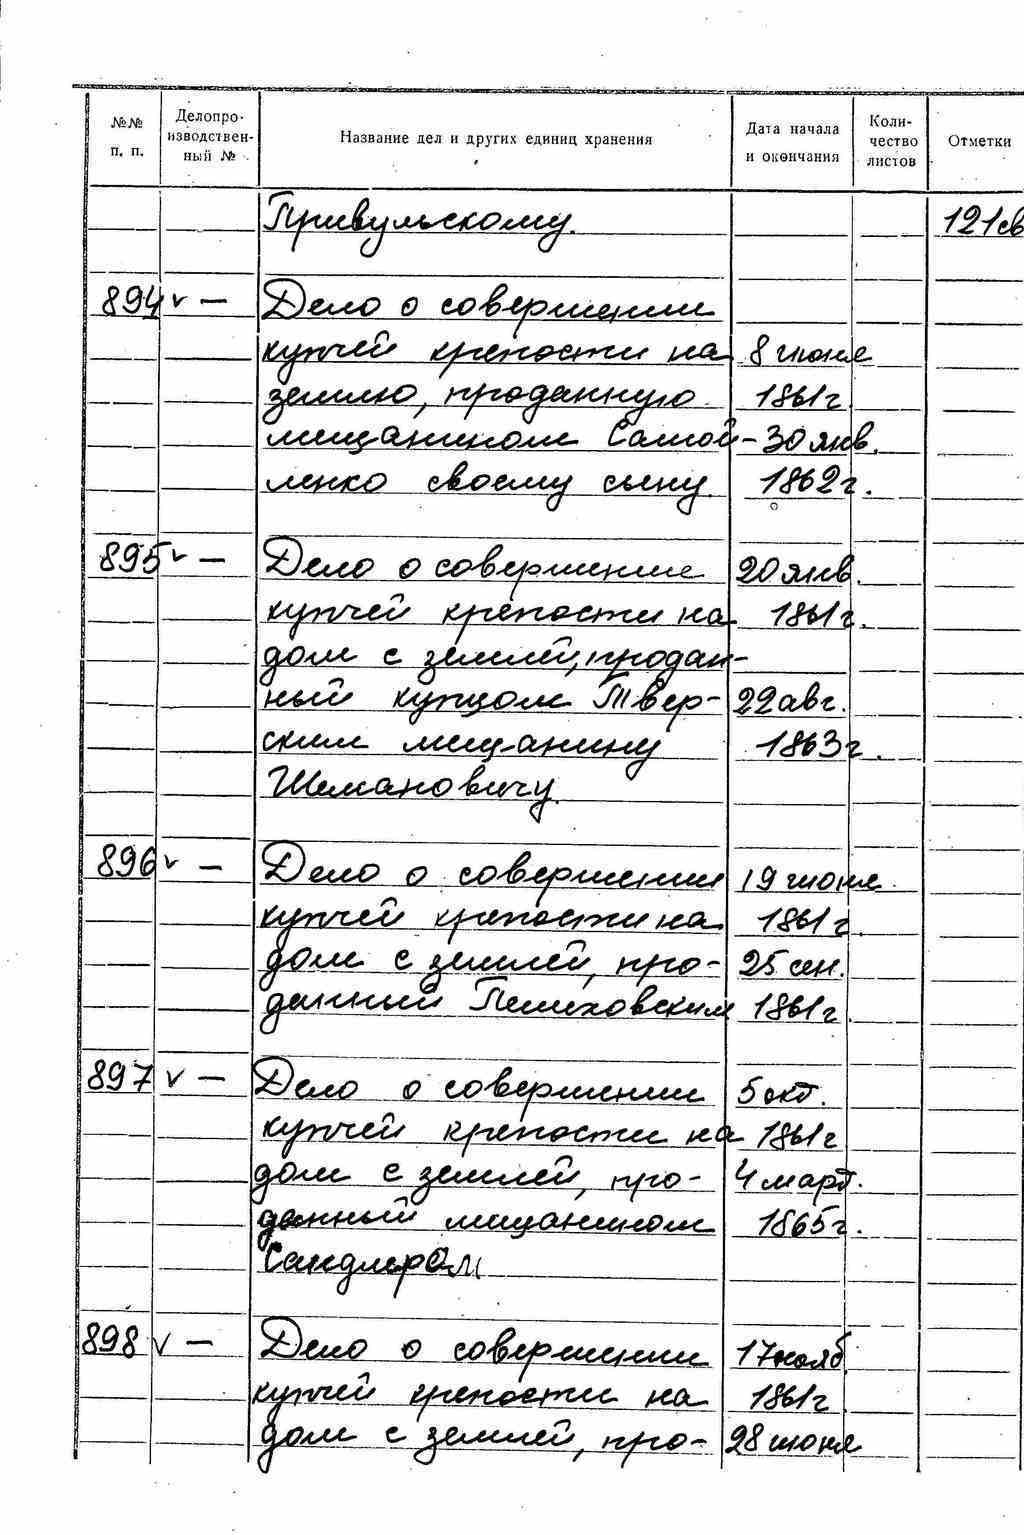 №№ п. п. Делопроизводствен-ный № Название дел и других единиц хранения Дата начала и окончания Коли-чество листов Отметки
Привульскому. 121св
894 v — Дело о совершении
купчей крепости на 8 июня
землю, проданную 1861г.
мещанином Самой- — 30 янв.
ленко своему сыну. 1862г.
895 v — Дело о совершение 20 янв.
купчей крепости на 1861г.
дом с землей, продан-
ный купцом Твер- 22 авг.
ским мещанину 1863г.
Шимановичу.
896 v — Дело о совершении 19 июня
купчей крепости на 1861г.
дом с землей, про- 25 сен.
данный Пешховским 1861г.
897 v — Дело о совершении 5 окт.
купчей крепости на 1861г
дом с землей, про- 4 март.
данный мещанином 1865г.
Сандлером
898 v — Дело о совершении 17 нояб.
купчей крепости на 1861г
дом с землей, про- 28 июня